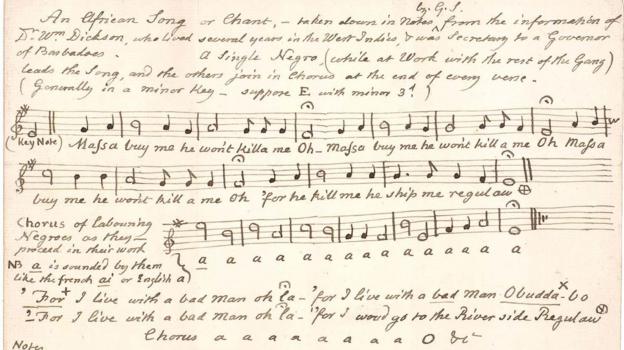 by G.S.
An African Song or Chant, – taken down in Notes, from the information of
Dr Wm Dickson, who lived several years in the West Indies, & was Secretary to a Governor
of Barbadoes. A Single Negro (while at Work with the rest of the Gang)
leads the Song, and the others join in Chorus at the end of every verse.
(Generally in a minor Key – suppose E with minor 3d.)
(Key Note) Massa buy me he wont killa me Oh – Massa buy me he wont kill a me Oh Massa
buy me he wont kill a me Oh 'for he kill me he ship me regulaw ⊕
Chorus of Labouring
Negroes as they
proceed in their work
a a a a a a a a
NB a is sounded by them
like the french ai or English a)
'For+ I live with a bad man oh la – 'for I live with a bad man Obudda x bo
2 For I live with a bad man oh la – 'for I woud go to the River side Regulaw ⊗
Chorus a a a a a a a a O &c
Notes